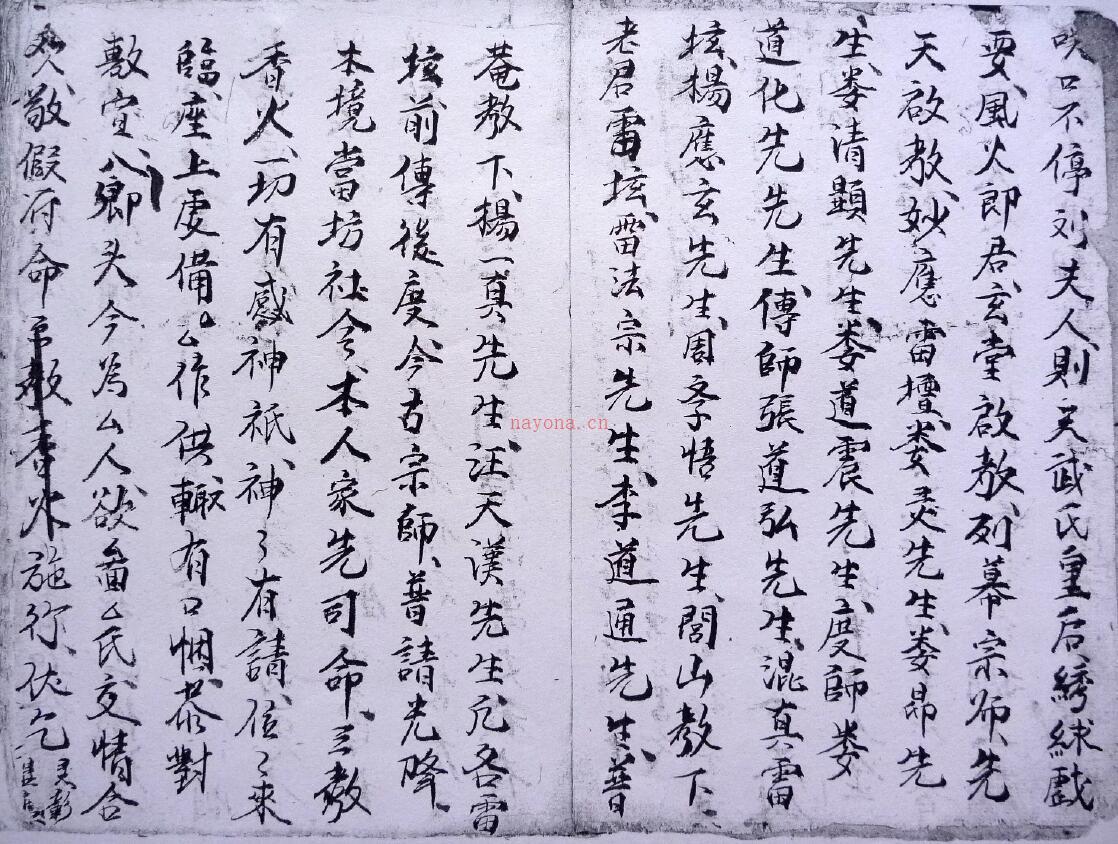 口不停刘夫人則天武氏皇后綉綵戲
耍風火郎君玄堂啟教列幕宗師先
天啟教妙應雷壇娄先生娄昻先
生娄清顕先生娄道震先生度師娄
道化先先生傅師張道弘先生混真雷
坛楊應玄先生周孝悟先生閭山教下
老君雷坛雷法宗先生李道通先生普
菴教下楊一真先生汪天漢先生凢各雷
坛前傳後度今古宗師普請光降
本境當坊社令本人家先司命三教
香火一切有感神祇神〻有請位〻來
臨座上虔備厶作供輙有口悃恭對
敷宣八卿头今為厶人欲畨厶氏交情合
敬假府命吊教香火施行伏乞
nayona.cn